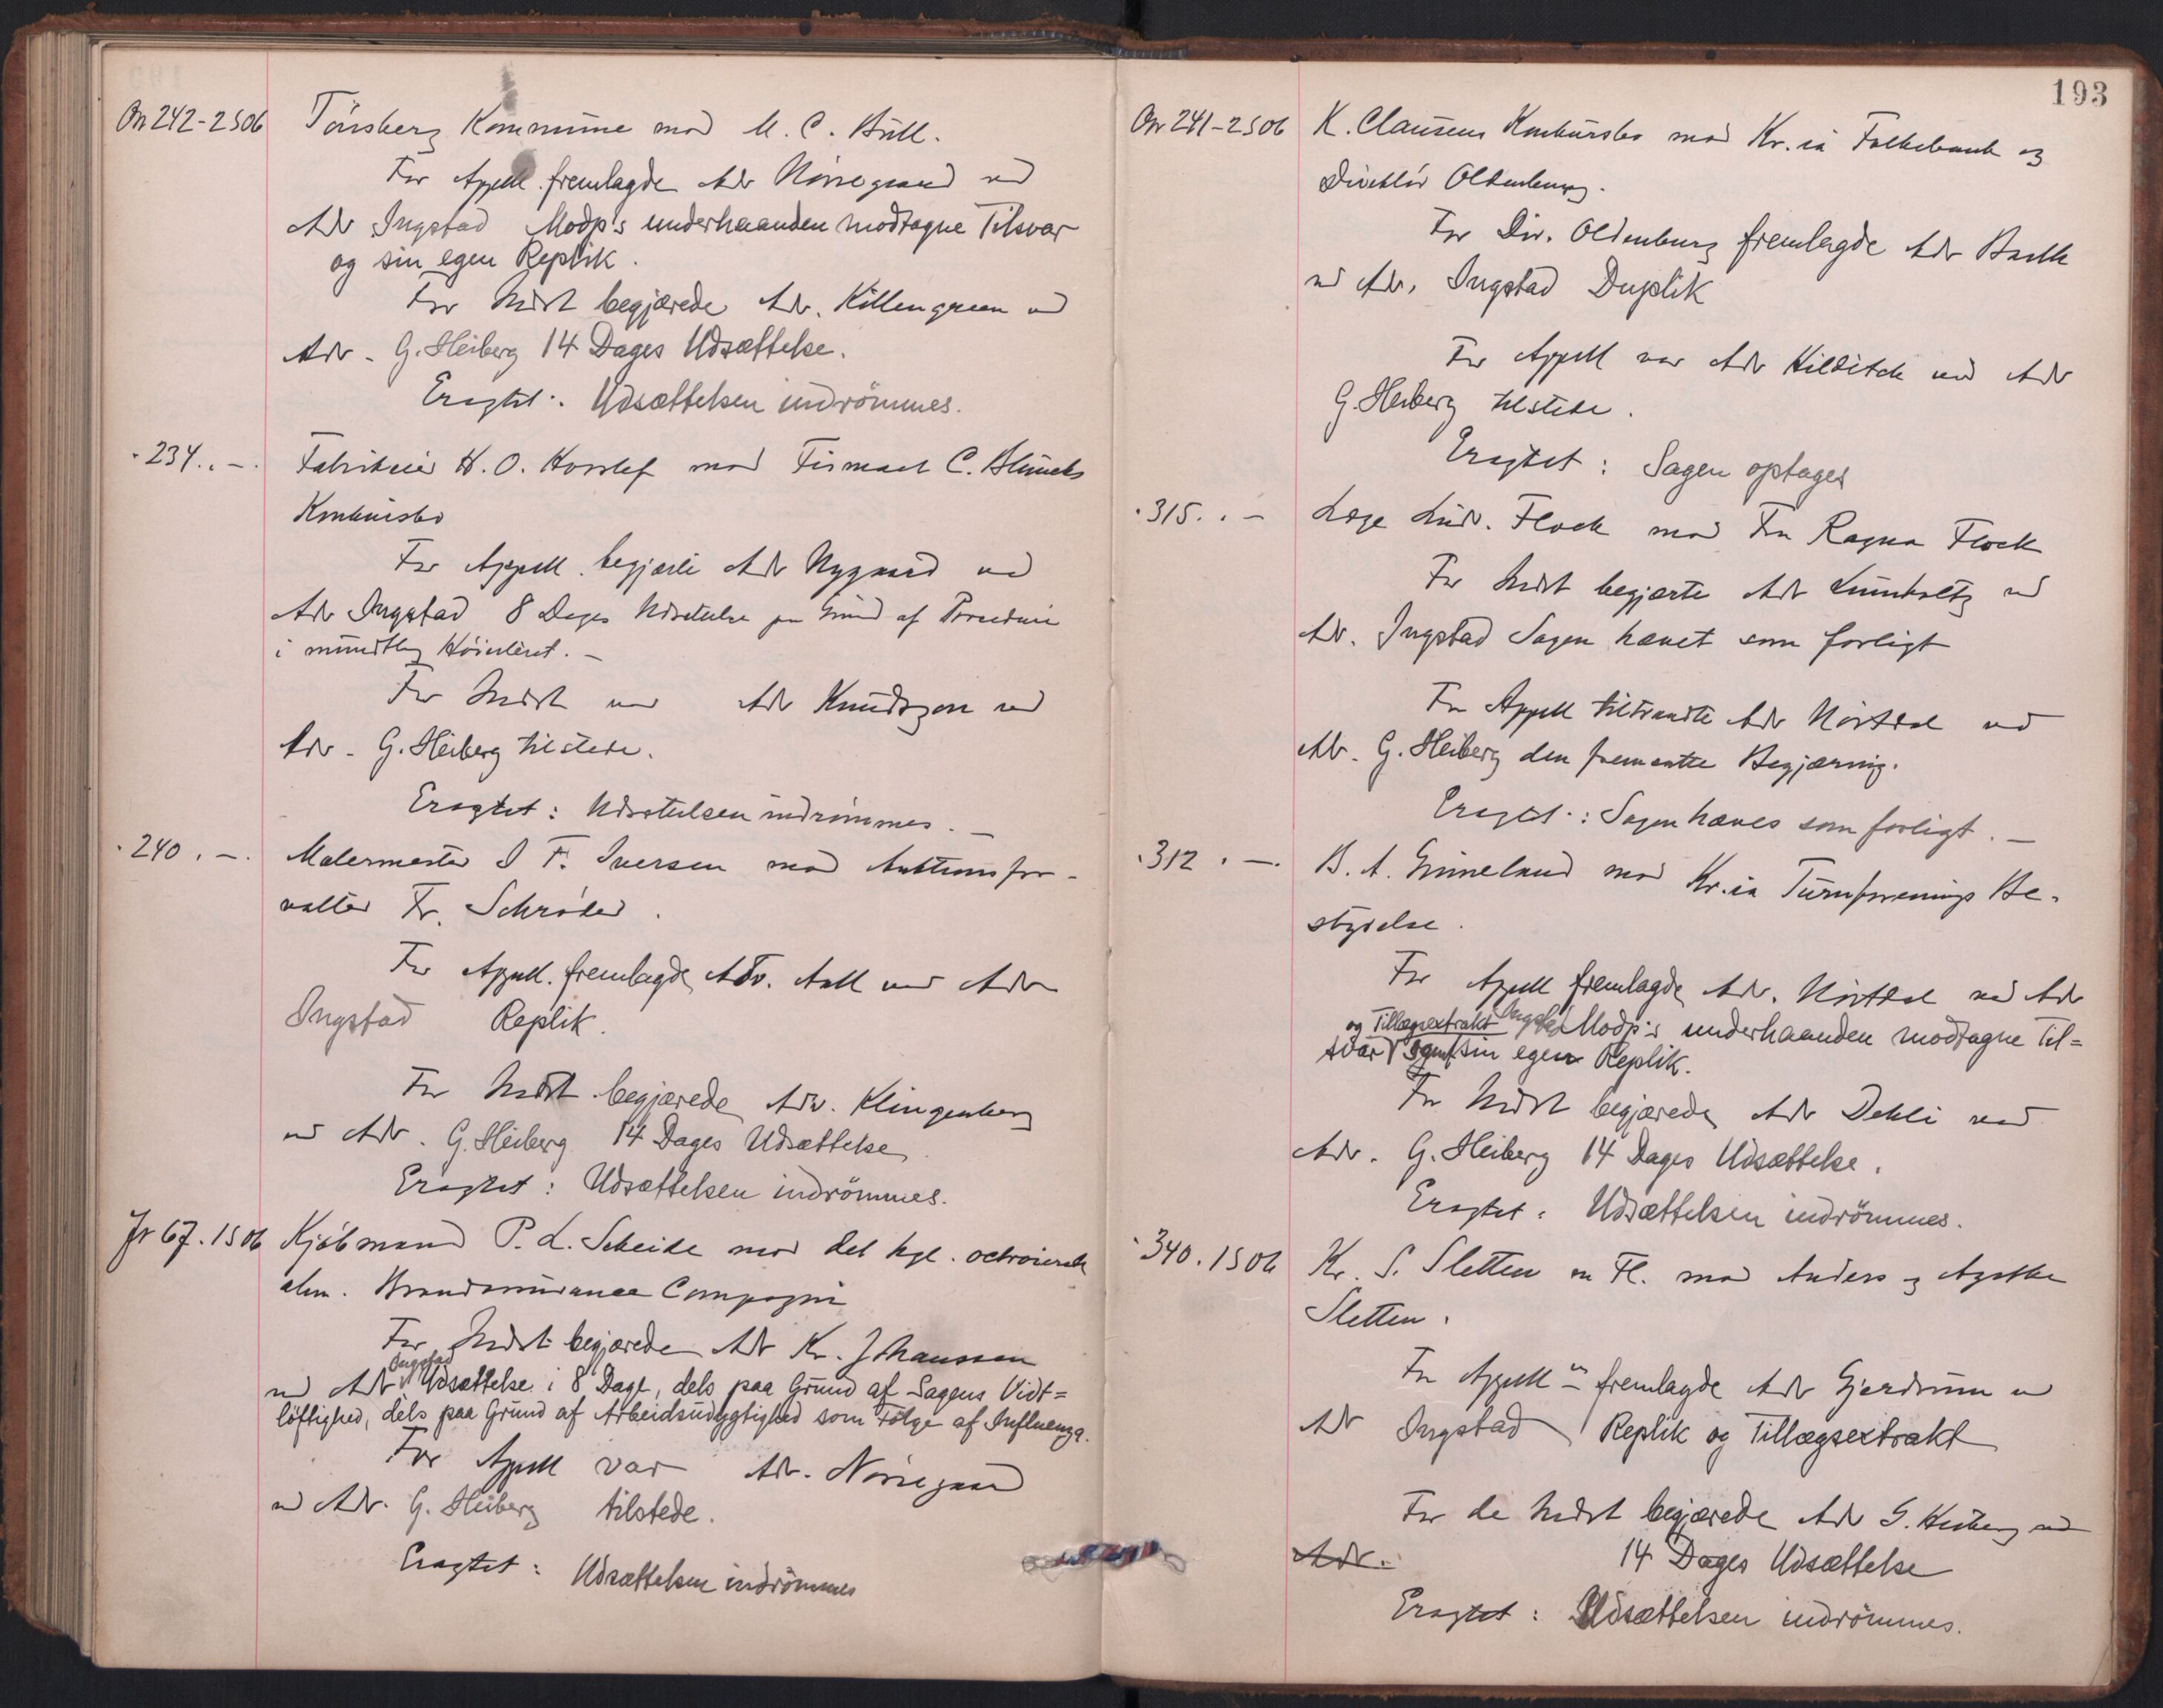 On 242-2 S 06 Tönsberg Kommune mod M. C. Bull.
For Appell. fremlagde Adv Nörregaard ved
Adv Ingstad Modp's underhaanden modtagne Tilsvar
og sin egen Replik.
For Indst begjærede Adv. Killengreen ved
Adv. G. Heiberg 14 Dages Udsættelse.
Eragtet: Udsættelsen indrömmes.
" 234 . " - Fabrikeier H. O. mod Firmaet C.
Konkursbo
For Appell. begjærte Adv Nygaard ved
Adv Ingstad 8 Dages Udsættelse paa Grund af Procedure
i mundtlig Höiesteret. -
For Indst var Adv Knudtzon ved
Adv. G. Heiberg tilstede.
Eragtet: Udsættelsen indrömmes. -
" 240 . - . Malermester I F. Iversen mod Auktionsfor-
valter Fr. Schröder.
For Appell. fremlagde Adv. Aall ved Adv
Ingstad Replik.
For Indst begjærede Adv. Klingenberg
ved Adv. G. Heiberg 14 Dages Udsættelse
Eragtet: Udsættelsen indrömmes.
Jr 67. 1 S 06 Kjöbmand P. L. Scheide mod det kgl. octroierede
alm. Brandassurance Compagni
For Indst begjærede Adv Kr. Johanssen
ved Adv Ingstad Udsættelse i 8 Dage, dels paa Grund af Sagens Vidt=
löftighed, dels paa Grund af Arbeidsudygtighed som Fölge af Influenza.
For Appell var Adv. Nörregaard
ved Adv. G. Heiberg tilstede.
Eragtet: Udsættelsen indrömmes
193
On 241-2 S 06 K. Clausens Konkursbo mod Kr.ia Folkebank og
Direktör Oldenburg.
For Dir. Oldenburg fremlagde Adv
ved Adv. Ingstad Duplik
For Appell var Adv Hilditch ved Adv
G. Heiberg tilstede.
Eragtet: Sagen optages
" 315. " - Læge Ludv. Flock mod Fru Ragna Flock
For Indst begjærte Adv Lumholtz ved
Adv. Ingstad Sagen hævet som forligt
For Appell tiltraadte Adv Nörstad ved
Adv. G. Heiberg den fremsatte Begjæring.
Eragtet: Sagen hæves som forligt. -
" 312 " - . B. A. Grimeland mod Kr.ia Turnforenings Be-
styrelse.
For Appell fremlagde Adv. Nörstad ved Adv
Ingstad Modp's underhaanden modtagne Til=
svar og Tillægsextrakt samt sin egen Replik.
For Indst begjærede Adv Dehli ved
Adv. G. Heiberg 14 Dages Udsættelse.
Eragtet: Udsættelsen indrömmes.
" 340. 1 S 06 Kr. S. Sletten m Fl. mod Anders og Agathe
Sletten.
For Appell fremlagde Adv Gjerdrum ved
Adv Ingstad Replik og Tillægsextrakt
For de Indst begjærede Adv G. Heiberg ved
Adv. 14 Dages Udsættelse
Eragtet: Udsættelsen indrömmes.